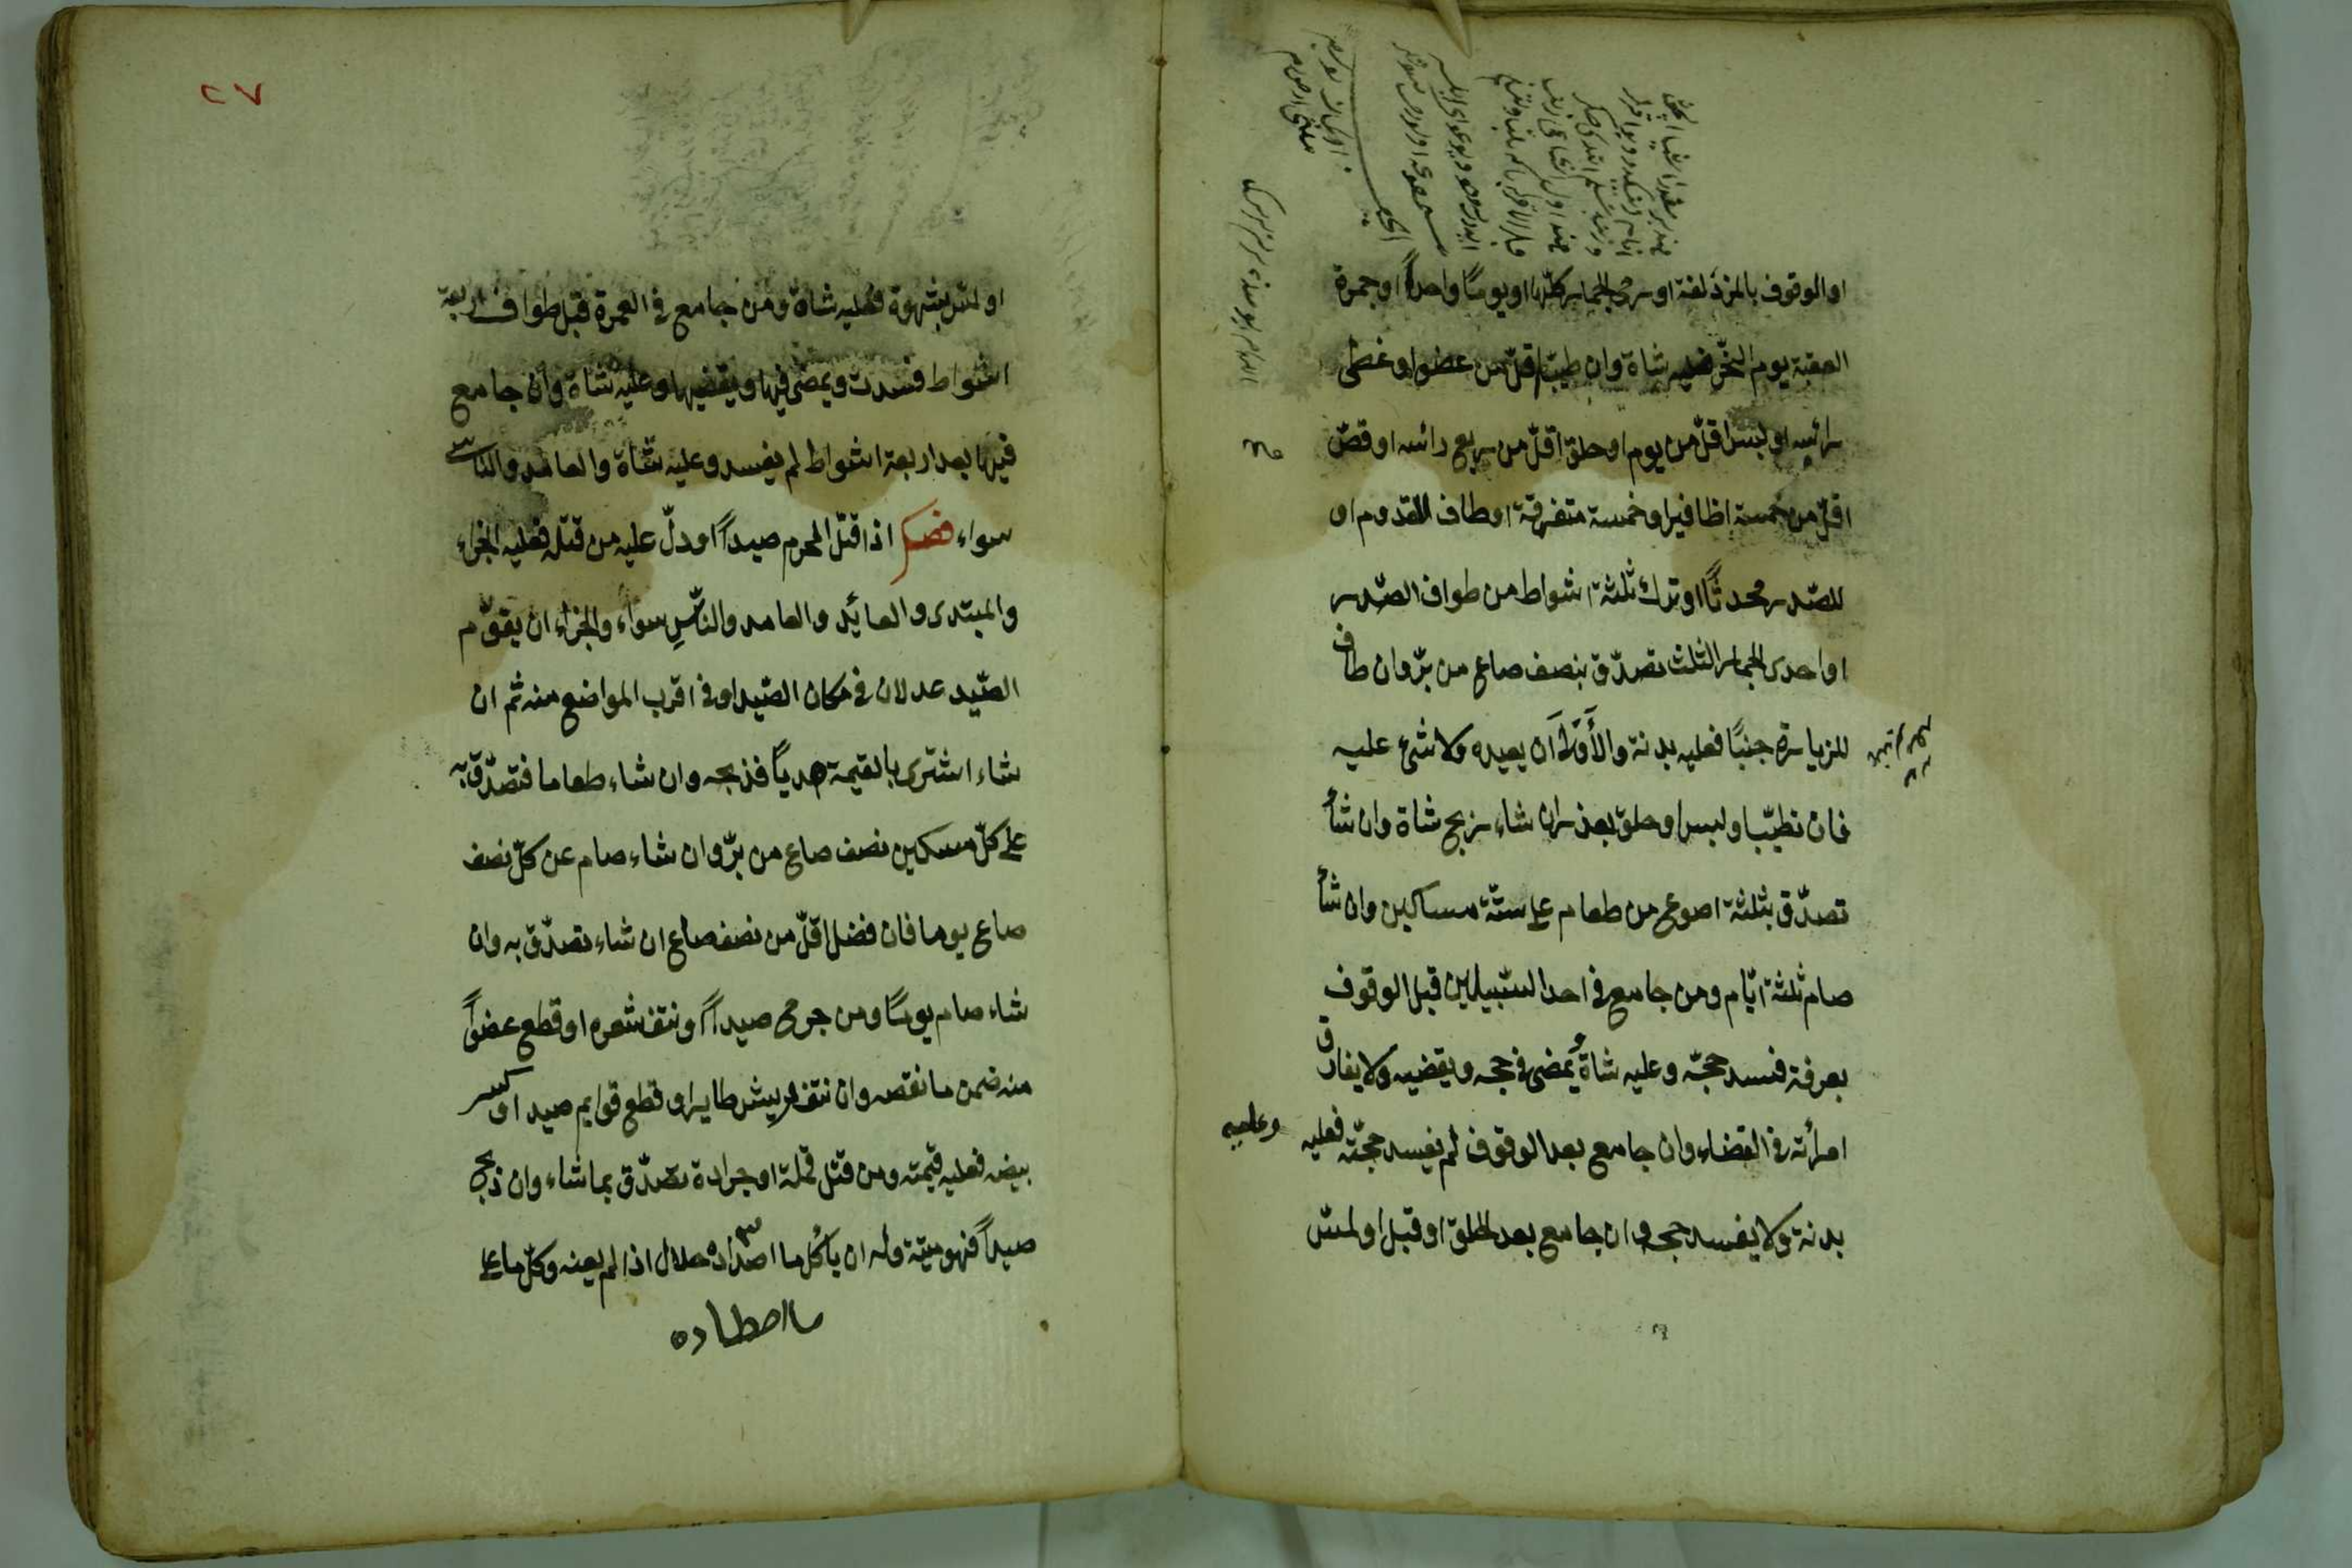 او الوقوف بالمزدلفة او رمى الجمار كلّها او يومًا واحداً او جمرة
العقبة يوم النحر فعليه شاة وان طيّب اقلّ من عضو او غطى
رأسه او لبس اقلّ من يوم او حلق اقلّ من ربع رائسه او قصّ
اقلّ من خمسة اظافير او خمسة متفرقة او طاف للقدوم او
للصّدر محدثًا او ترك ثلثة اشواط من طواف الصّدر
او احدى الجمار الثلث تصدّق بنصف صاع من برّ وان طاف
للزيارة جنبًا فعليه بدنة والأَوْلَى اَن يعيده ولا شئ عليه
فان تطيّب او لبس او حلق بعذر ان شاء ذبح شاة وان شأ
تصدّق بثلثة اصوع من طعام على ستّة مساكين وان شأ
صام ثلثة ايّام ومن جامع فى احد السّبيلين قبل الوقوف
بعرفة فسد حجّه وعليه شاة و يمضى فى حجه ويقضيه ولا يفارق
امرأته فى القضاء وان جامع بعد الوقوف لم يفسد حجّته فعليه
وعليه
بدنة ولا يفسد حجه وان جامع بعد الحلق او قبل او لمسّ
٢٧
او لمس بشهوة فعليه شاة ومن جامع فى العمرة قبل طواف اربعة
اشواط فسدت ويمضى فيها ويقضيها وعليه شاة وان جامع
فيها بعد اربعة اشواط لم يفسد وعليه شاة والعامد والناسى
سواء فصل اذا قتل المحرم صيداً او دلّ عليه من قتله فعليه الجزاء
والمبتدى والعائد والعامد والنّاسِ سواء والجزاء ان يقوّم
الصّيد عدلان فى مكان الصّيد او فى اقرب المواضع منه ثم ان
شاء اشترى بالقيمة هديًا فذبحه وان شاء طعاما فتصدّق به
على كلّ مسكين نصف صاع من برّ وان شاء صام عن كلّ نصف
صاع يوما فان فضل اقلّ من نصف صاع ان شاء تصدّق به وان
شاء صام يومًا ومن جرح صيداً او نتف شعره او قطع عضواً
منه ضمن ما نقصه وان نتف ريش طاير او قطع قوايم صيد او كسر
بيضه فعليه قيمته ومن قتل قملة او جرادة تصدّق بما شاء وان ذبح
صيداً فهو ميتة وله ان يأكُل ما اصداده حلال اذا لم يعنه وكلّ ما على
ما اصطاده